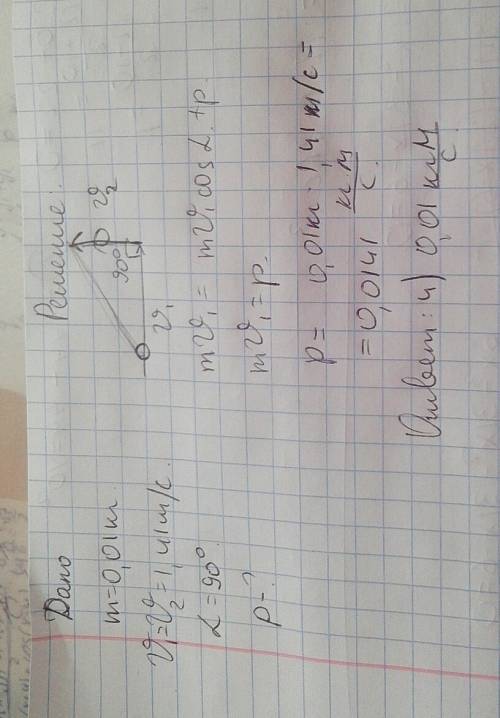 Дано
m=0,01кг
𝜗₁=𝜗₂=1,41м/с.
α=90°
p-?
Решение:
90°
𝜗₂
𝜗₁
m𝜗₁ = m𝜗₁ cos α + p.
m𝜗₁ = p.
p = 0,01кг · 1,41 м/с =
= 0,0141 кг м/с.
Ответ: 4) 0,01 кг м/с.